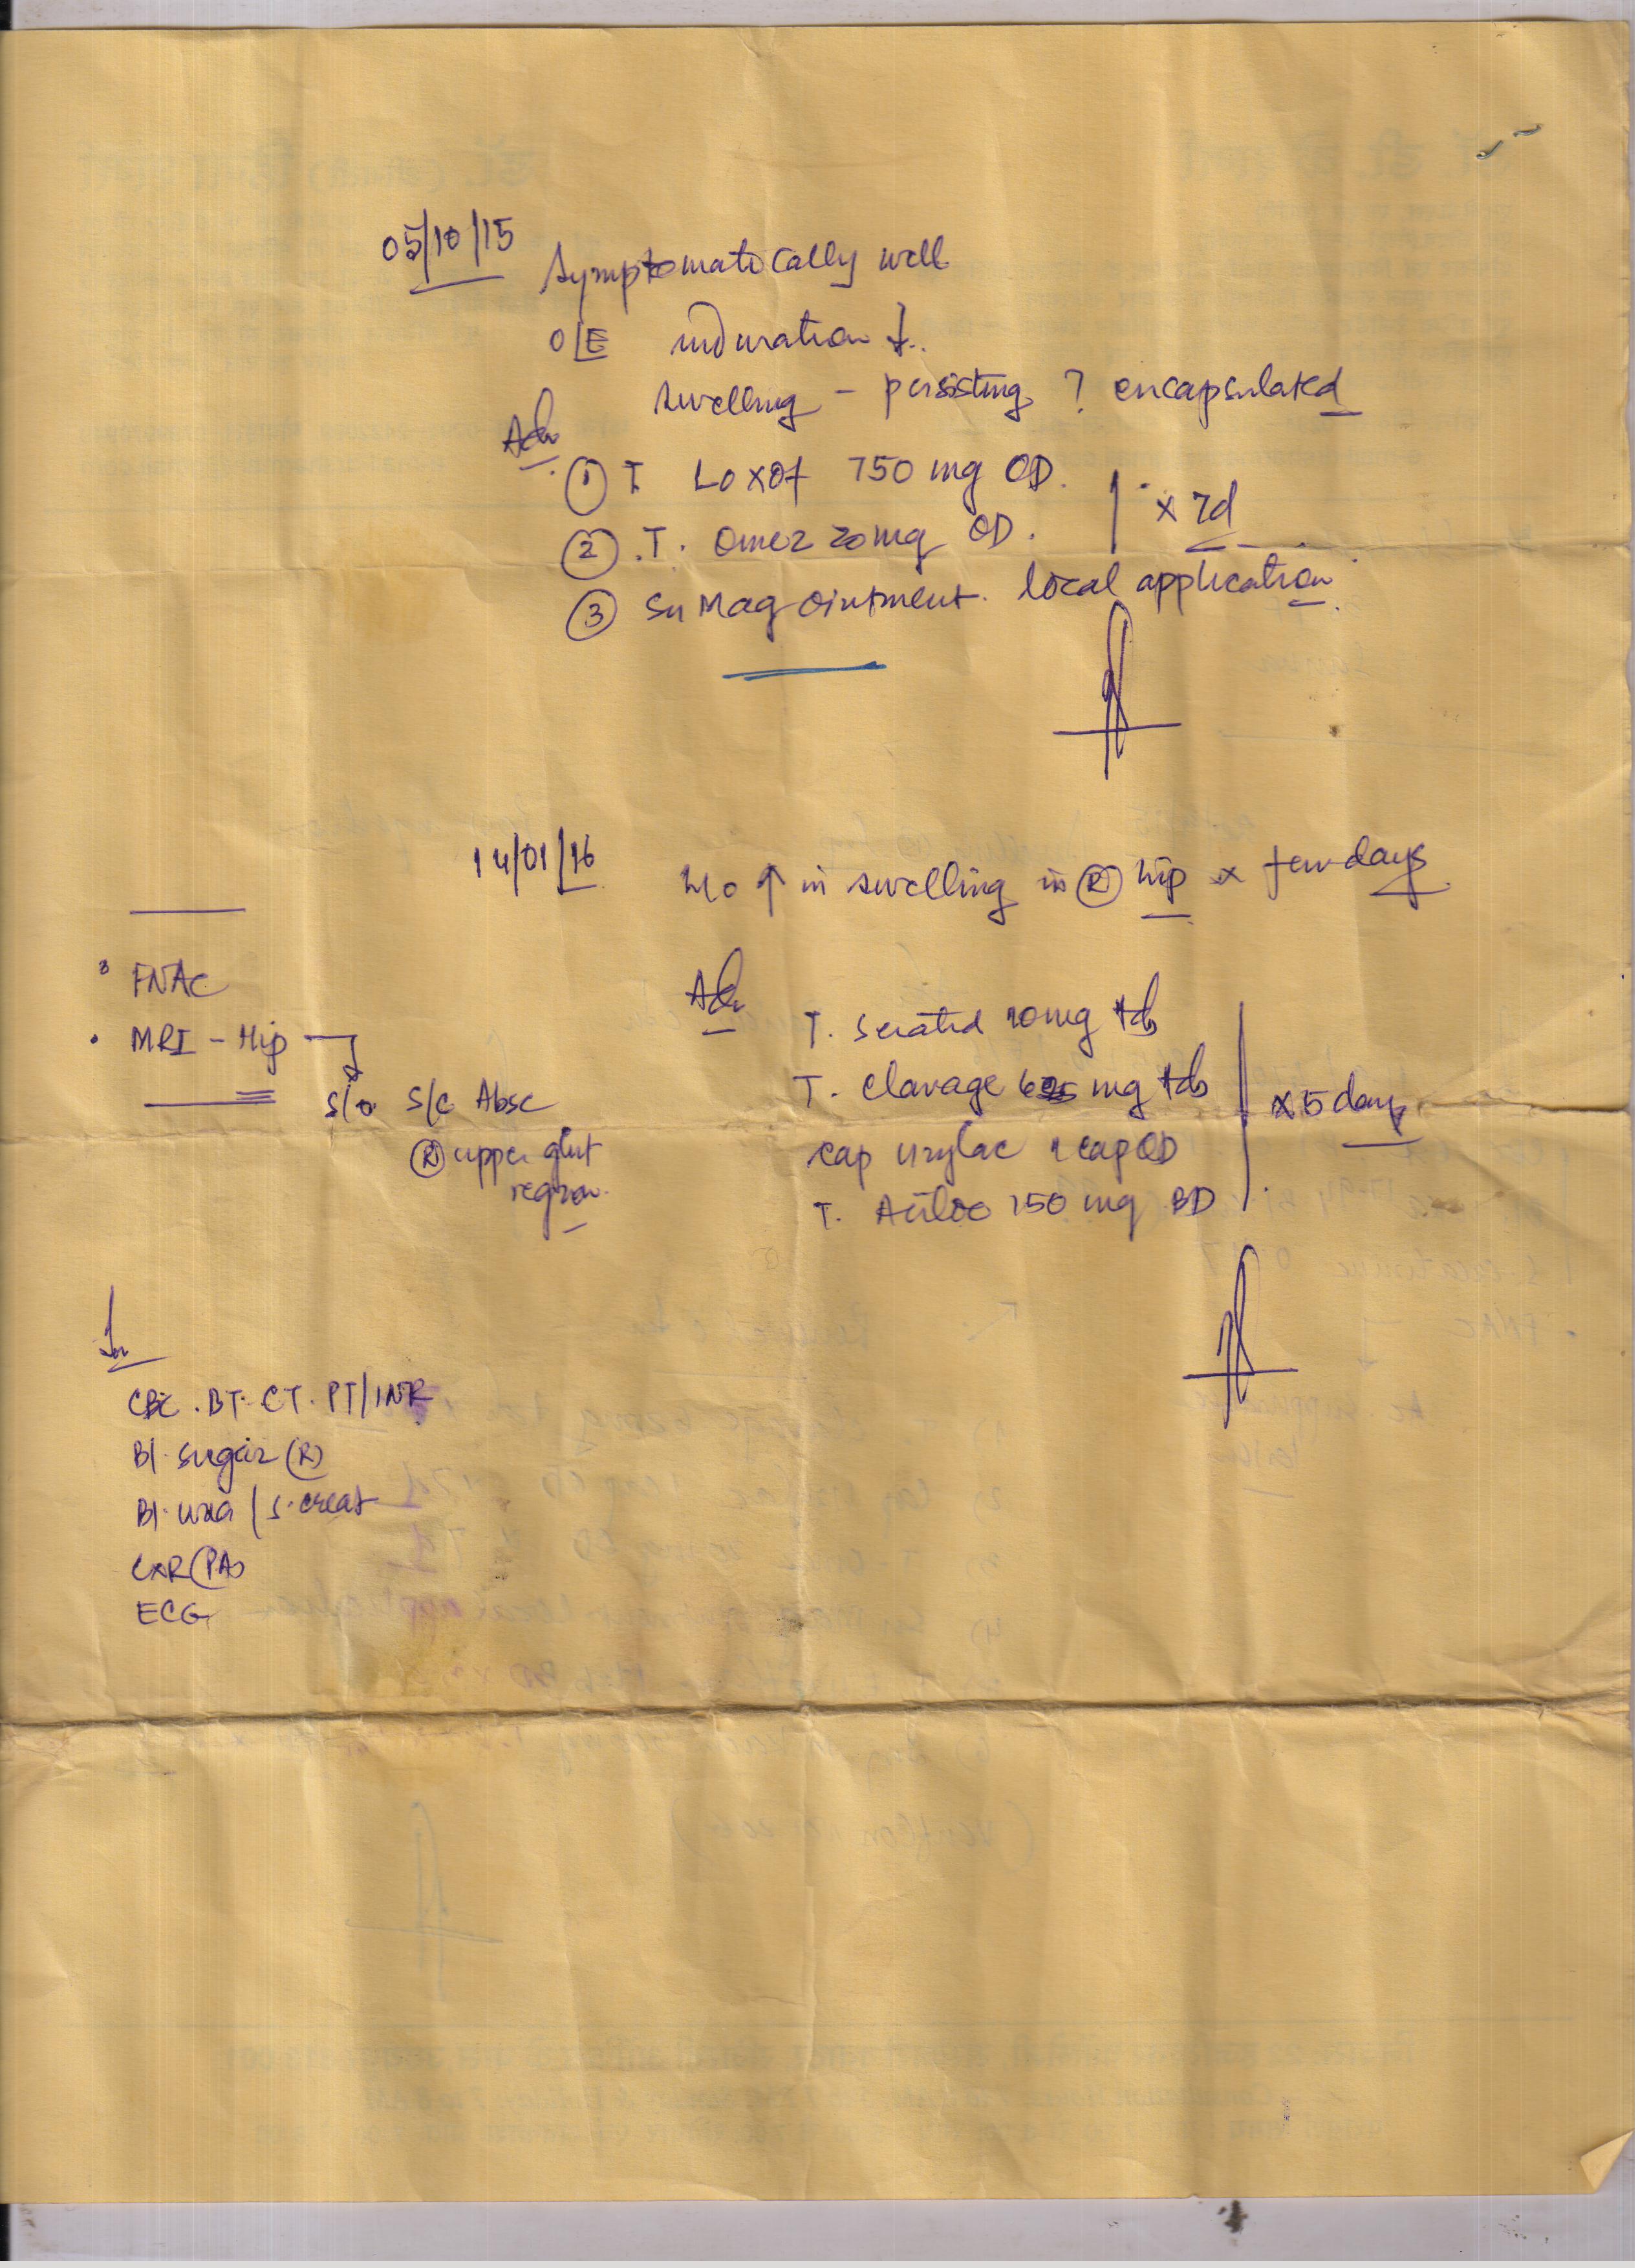 05/10/15
Symptomatically well
O/E induration ↓.
swelling - persisting ? encapsulated
Adv
① T Loxof 750 mg OD.
② T. Omez 20 mg OD. x 7d
③ Su Mag ointment. local application
14/01/16 H/o ↑ in swelling in Ⓡ hip x few days
Adv
T. 10 mg tds
T. Clavage 625 mg tds
cap 1 cap OD
T. 150 mg BD
x 5 days
FNAC
MRI - Hip
S/o S/c Absc
Ⓡ upper glut
region.
CBC. BT. CT. PT/INR
Bl. sugar (R)
Bl. urea / S. creat
CXR (PA)
ECG